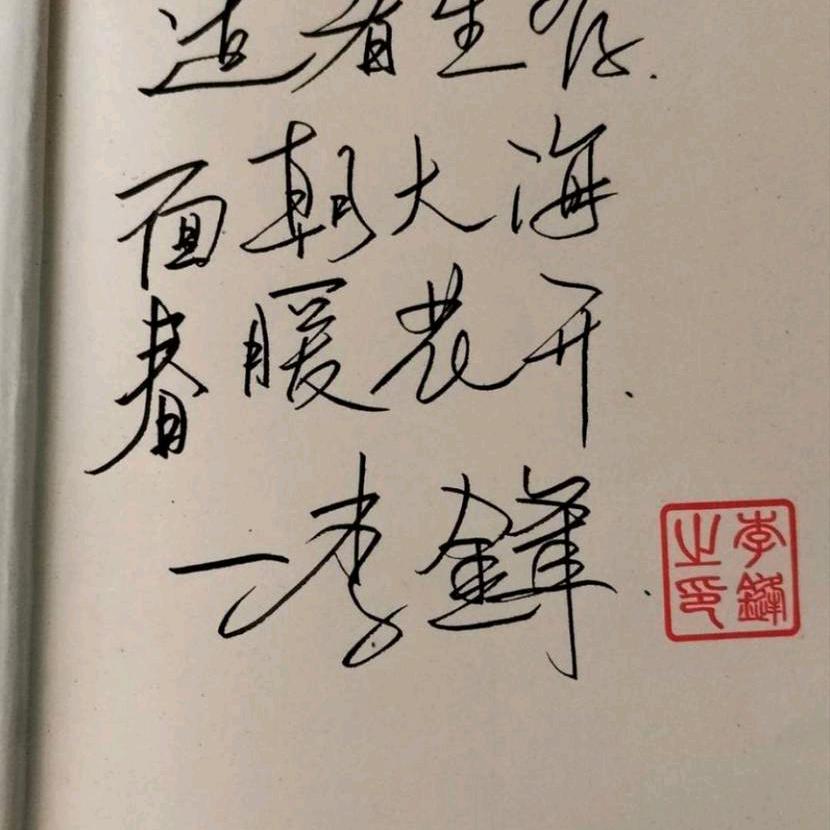 适者生存.
面朝大海
春暖花开.
一李鋒.
李鋒之印